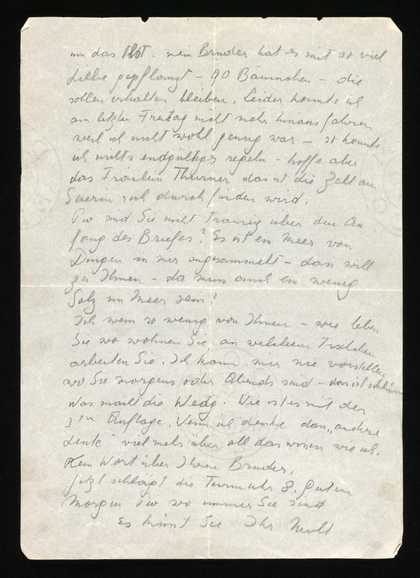 um das Obst. mein Bruder hat es mit so viel
Liebe gepflanzt - 90 Bäumchen - die
sollen erhalten bleiben. Leider konnte ich
am letzten Freitag nicht mehr hinausfahren
weil ich nicht wohl genug war - so konnte
ich nichts endgültiges regeln - hoffe aber
das Fräulein
sich durch finden wird.
Sind Sie nicht traurig über den An
fang des Briefes? Es ist ein Meer von
Dingen in mir angesammelt - das will
zu Ihnen - da muss auch ein wenig
Salz im Meer sein!
Ich weiss so wenig von Ihnen - wie leben
Sie wo wohnen Sie, an welchem
arbeiten Sie. Ich kann mir nie vorstellen
wo Sie morgens oder Abends sind - das ist schlimm
Was macht die Wie ist es mit der
Auflage. Wenn ich denke das "andere
denke" viel mehr über all das wissen wie ich.
Kein Wort über Ihren Bruder.
Jetzt schlägt die Turmuhr 8. Guten
Morgen wo immer Sie sind
Es küsst Sie Ihr